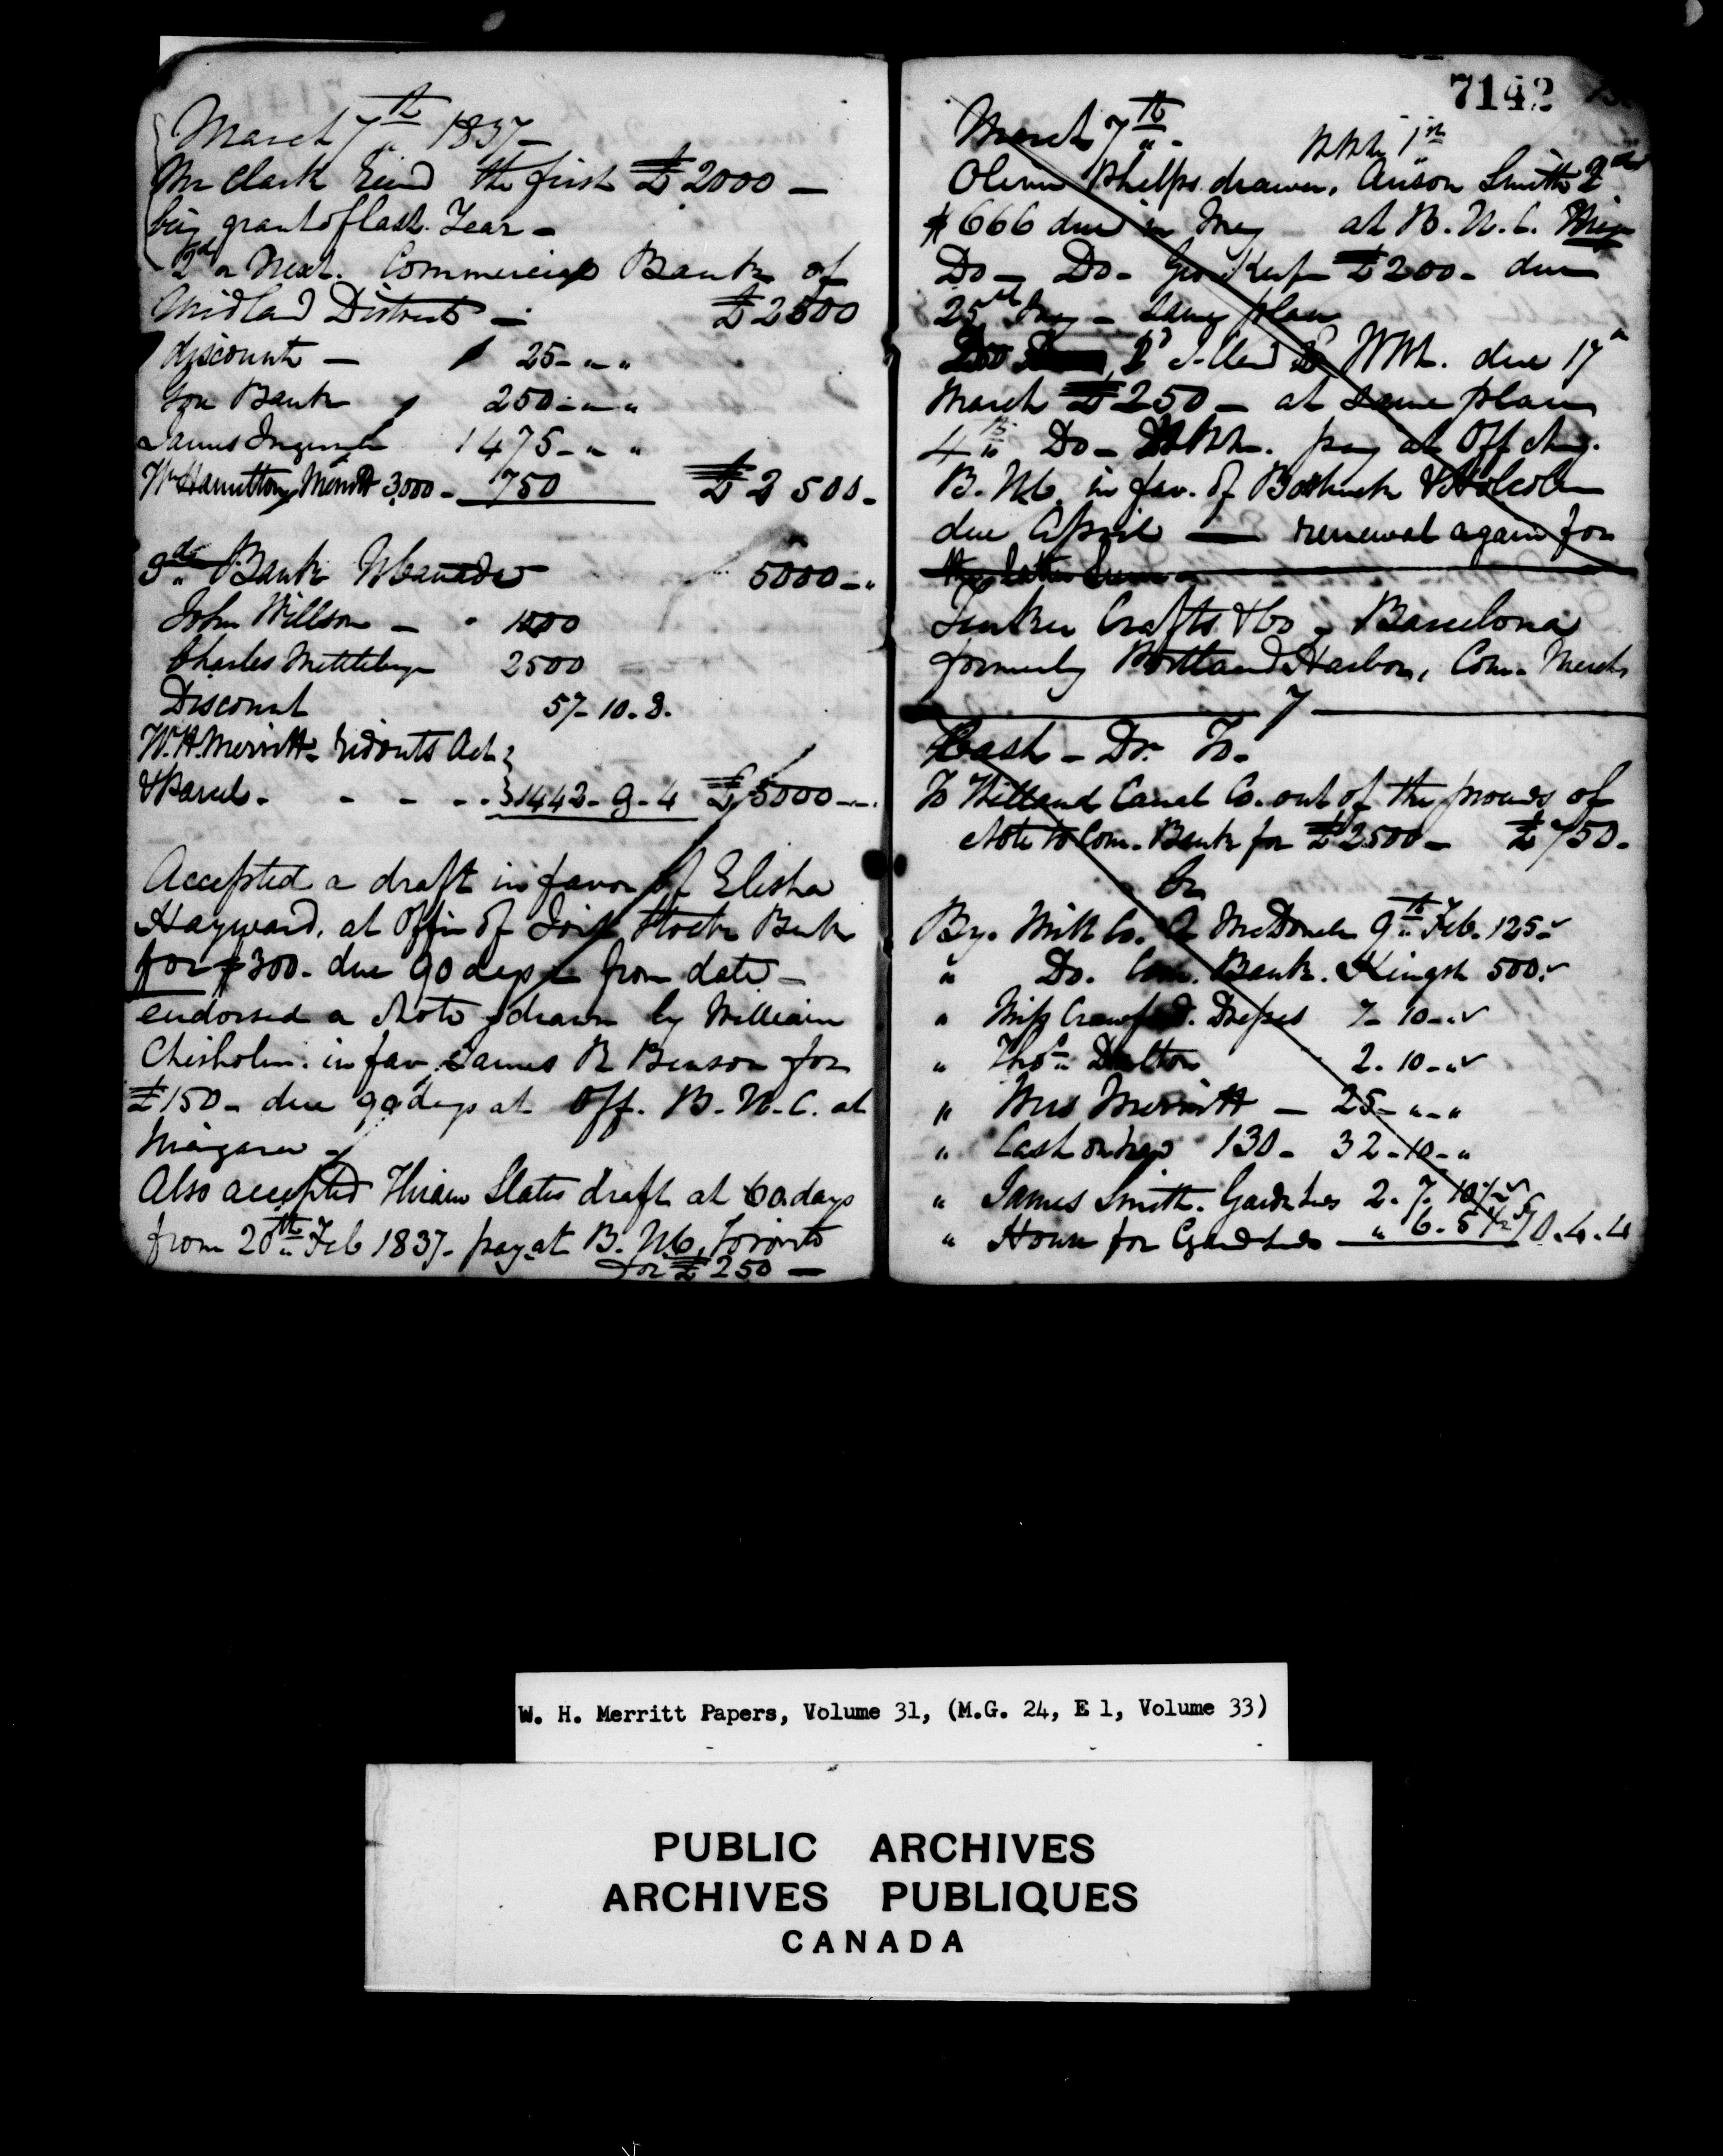 March 7th 1837-
Mr Clark Recd the first £2000 -
being grant of last Year -
2d or Next. Commercial Bank of
Midland District - £2500
discount - 25- " "
Gore Bank 250 - " "
James 1475 - " "
Wm Hamilton Merritt 3000 - 750 £2500-
3d Bank U Canada 5000-"
John Willson -
Charles 2500
Discount 57-10.8.
W. H. Merritt - Ridouts Act
& Parcel - - - - 1442-9-4 £5000-"
Accepted a draft in favor of Elisha
Hayward, at Office of Joint Stock Bank
for $300- due 90 days from date -
endorsed a Note drawn by William
Chisholm. in fav James R Benson for
£150- due 90 days at Off. B. U. C. at
Niagara
Also accepted Hiram Slates draft at 60 days
from 20th Feb 1837- pay at B. U C, Toronto
for £250 -
7142
March 7th -
WHM 1st
Oliver Phelps drawer, Anson Smith 2d
$666 due in May at B. U. C.
Do- Do- Geo £200- due
25th - same place
WHM. due 17"
March £250 - at same place
4th Do- WHM. pay at Off
B. U C. in fav. of Bostwick & Holcolm
due April - renewal again for
Tinker Crafts & Co, Barcelona
formerly Portland Harbor, Com. Merch
7
Cash - Dr. To.
To Welland Canal Co. out of the proceeds of
Note to Com. Bank for £2500- £750-
Cr
By. Mill Co. A McDonell 9th Feb. 125-
" Do. Com. Bank. Kingst 500-
" Miss Crawford. Dresses 7-10-"
" Thos. Dalton 2.10-"
" Mrs Merritt - 25-"-"
" Cash 130- 32-10-"
" James Smith. Garden Seeds 2.7.10½
" House for Gard Seeds " 6-5½ 4.4
W. H. Merritt Papers, Volume 31, (M.G. 24, E 1, Volume 33)
PUBLIC ARCHIVES
ARCHIVES PUBLIQUES
CANADA